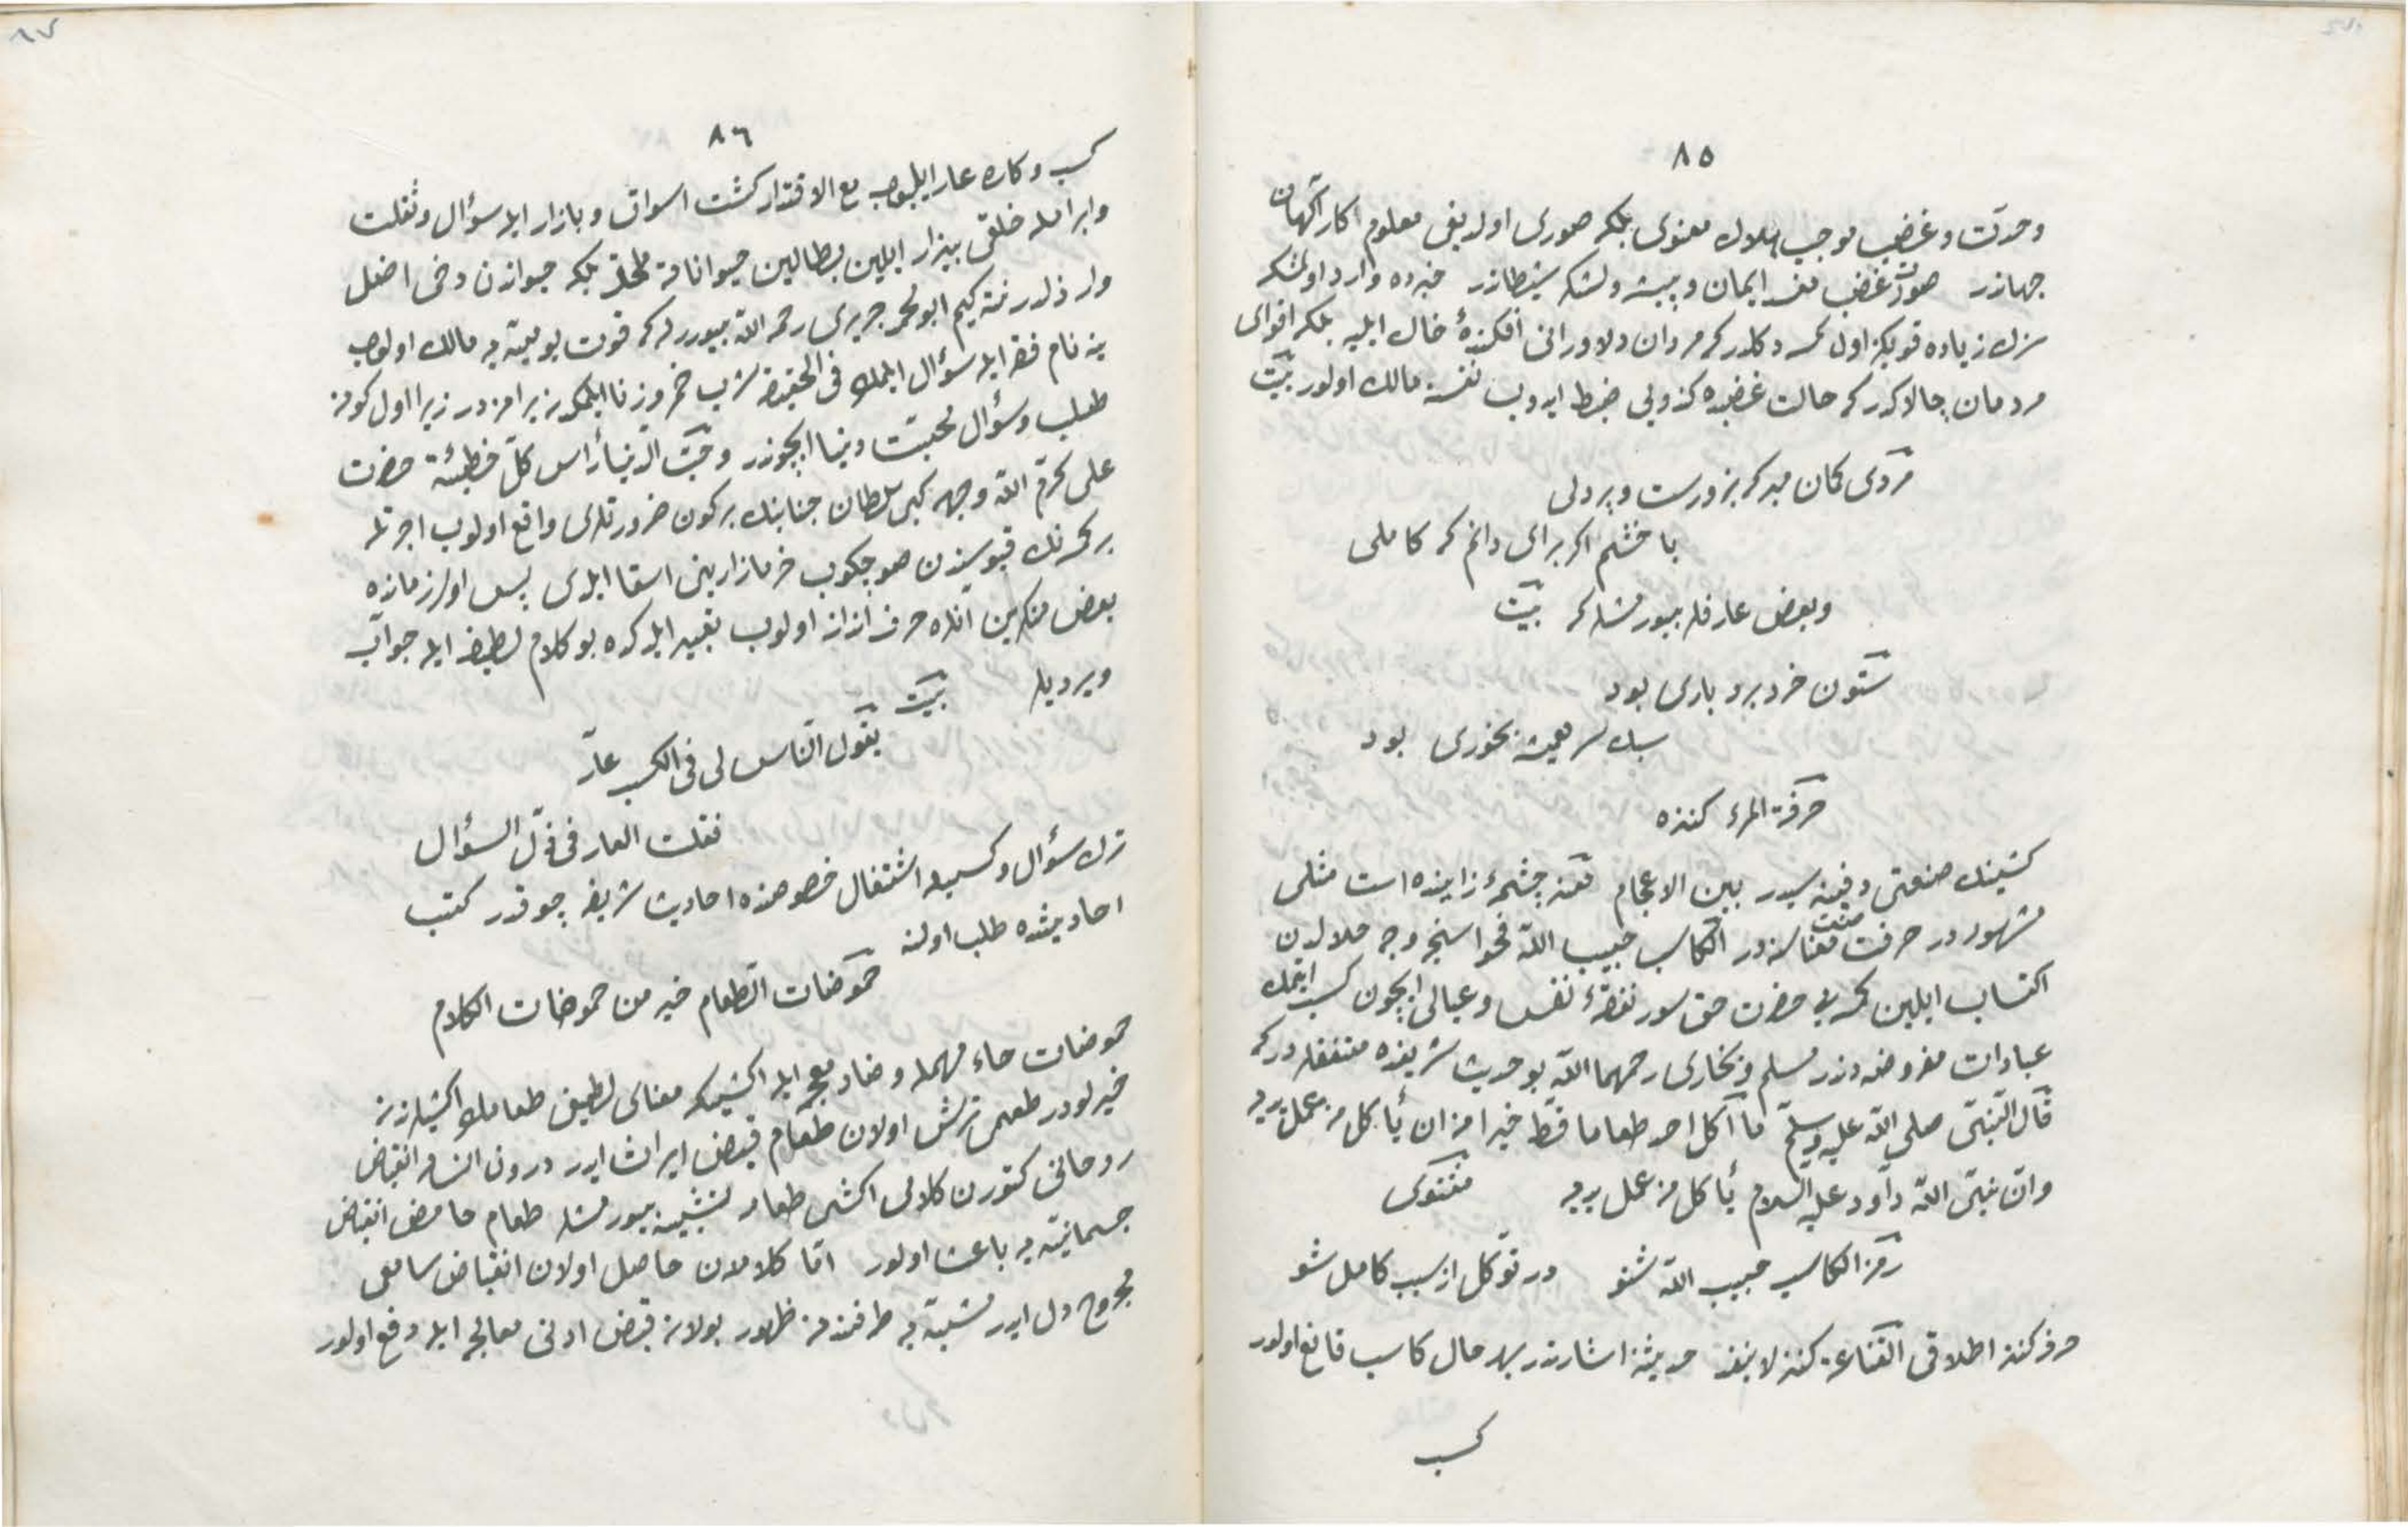 ٨٥
وحدت وغضب موجب هلاك معنوى بلكه صورى اولديغى معلوم اكار آكهان
جهاندر صورت غضب مفسد ايمان و پيشرو لشكر شيطاندر خبرده وارد اولمشكه
سزك زياده قويكز اول كسه دكلدر كه مردان دلاورانى افكندهٔ خاك ايليه بلكه اقواى
مردمان چالاكدر كه حالت غضبده كندويى ضبط ايدوب نفسنه مالك اولور بيت
مردى كمان مبر كه بزورست و پردلى
با خشم اكر براى دانم كه كاملى
وبعض عارفلر بيورمشلر كه بيت
ستون خرد بردبارى بود
سبك سر هميشه بخورى بود
حرفة المرء كنزه
كشينك صنعتى دفينه سيدر بين الاعجام صنعت چشمهٔ زاينده است مثلى
مشهوردر حرفت صنعت معناسنه در الكاسب حبيب الله فحواسنجه وجه حلالدن
اكتساب ايلين كسه يى حضرت حق سور نفقهٔ نفس وعيالى ايچون كسب ايتمك
عبادات مفروضه دندر مسلم وبخارى رحمهما الله بو حديث شريفده متفقلردر كه
قال النبى صلى الله عليه وسلم ما آكل احد طعاما قط خيرا من ان يأكل من عمل يديه
وان نبى الله داود عليه السلام يأكل من عمل يديه مثنوى
رمز الكاسب حبيب الله شنو در توكل از سبب كامل شو
حرفه كنز اطلاقى القناعة كنز لا ينفد حديثنه اشارتدر بهر حال كاسب قانع اولور
كسب
٨٦
كسب وكاره عار ايليوب مع الاقتدار كشت اسواق و بازار ايله سؤال وثقلت
وابرامله خلقى بيزار ايلين بطالين حيواناته ملحق بلكه حيواندن دخى اضل
وارذلدر نته كيم ابو محمد جريرى رحمه الله بيوررلر كه قوت يوميه يه مالك اولوب
ينه نام فقر ايله سؤال ايلمك فى الحقيقة شرب خمر وزنا ايلمكدن بدتردر زيرا اول كونه
طلب وسؤال محبت دنيا ايچوندر وحب الدنيا رأس كل خطيئة حضرت
على كرم الله وجهه كبى سلطان جنابنك بر كون ضرورتلرى واقع اولوب اجرتله
بر كسه نك قيوسندن صو چكوب خرمازارينى اسقا ايلدى پس اولزمانده
بعض منكرين آنلره حرف انداز اولوب تعيير ايلدكده بو كلام لطيف ايله جواب
ويرديلر بيت
يقول الناس لى فى الكسب عار
فقلت العار فى ذل السؤال
ترك سؤال وكسبله اشتغال خصوصنده احاديث شريفه چوقدر كتب
احاديثده طلب اولنه
حموضات الطعام خير من حموضات الكلام
حموضات حاء مهمله وضاد معجمه ايله اكشيمكه معناى لطيفى طعاملرك اكشيلرندن
خيرلودر طعمى ترش اولان طعام قبض ايراث ايدر درون انسانه انقباض
روحانى كتورن كلامى اكشى طعامه تشبيه بيورمشلر طعام حامض انقباض
جسمانيته يه باعث اولور اما كلامدن حاصل اولان انقباض سامعى
مجروح دل ايدر مشبه به طرفندن ظهور بولان قبض ادنى معالجه ايله دفع اولور